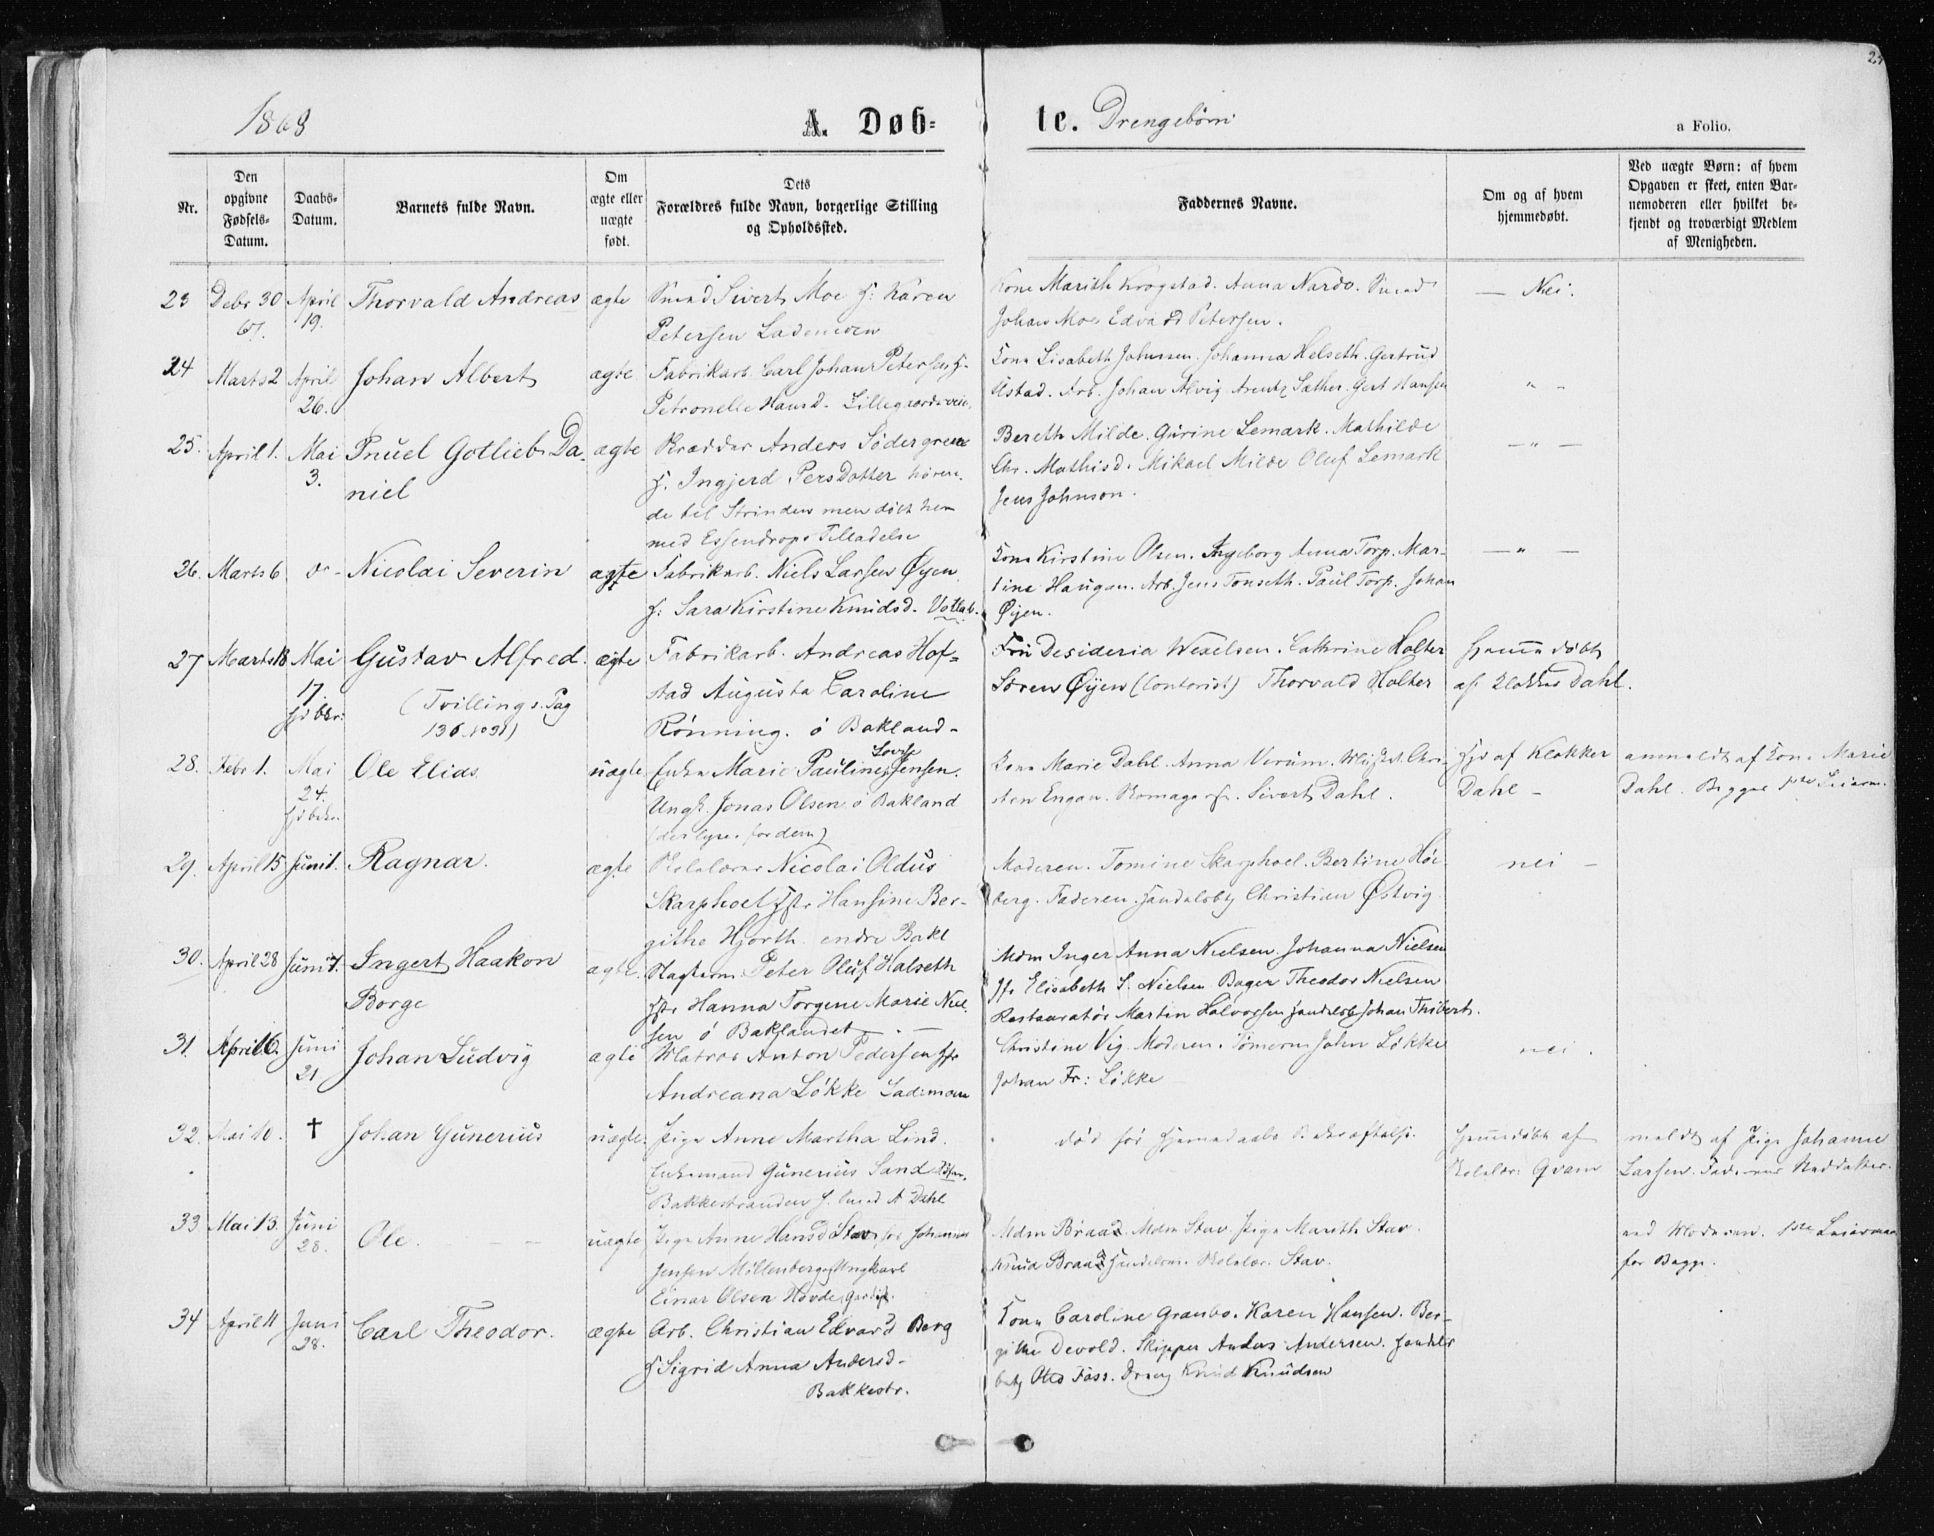 1868
A. Døb=
te. Drengebørn
a Folio.
Nr.
Den opgivne Fødsels-Datum.
Daabs-Datum.
Barnets fulde Navn.
Om ægte eller uægte født.
Dets Forældres fulde Navn, borgerlige Stilling og Opholdssted.
Faddernes Navne.
Om og af hvem hjemmedøbt.
Ved uægte Børn: af hvem Opgaven er skeet, enten Barnemoderen eller hvilket bekjendt og troværdigt Medlem af Menigheden.
23 Debr 30 April Thorvald Andreas ægte Smed Sivert Moe H: Karen
67. 19. Petersen Lademoen
Kone Marith Krogstad. Anna Nardo. Smed — Nei.
Johan Moe Edvard Petersen.
24 Marts 2 April Johan Albert ægte Fabrikarb. Carl Johan Petersen H.
26. Petronelle Hansd. Lillegaardsveien.
Kone Lisabeth Johnsen. Johanna Helseth. Gertrud
Ustad. Arb. Johan Alvig. Arentz Sæther. Gert Hansen " -
25. April 1. Mai Pnuel Gotlieb Da- ægte Skrædder Anders Södergreen
3. niel H. Ingjerd PersDatter hören-
de til Strinden men döbt her
med Essendrops Tilladelse
Bereth Milde. Gurine Lemark. Mathilde
Chr. Mathisd. Mikael Milde Oluf Lemark — " —
Jens Johnson.
26. Marts 6 do - Nicolai Severin ægte Fabrikarb. Niels Larsen Øyen
H: Sara Kirstine Knudsd. Vollab.
Kone Kirstine Olsen. Ingeborg Anna Torp. Mar- — " —
tine Haugan. Arb. Jens Tonseth. Paul Torp. Johan
Øyen.
27 Marts 18 Mai Gustav Alfred. ægte Fabrikarb. Andreas Hof=
17 (Tvillings. Pag stad Augusta Caroline
hjd bkr: 136 no 31) Rönning. ö Bakland-
Fru Desideria Wexelsen. Cathrine Holter Hjemmedöbt
Sören Øyen (Contorist) Thorvald Holter af Klokker Dahl.
28. Febr 1. Mai Ole Elias uægte Enke Marie Pauline Lovise Jensen.
24. Ungk. Jonas Olsen ö Bakland
hjd bekr.
Kone Marie Dahl. Anna Verum. Chri- Hjd af Klokker anmeldt af Kone Marie
sten Engan. Sivert Dahl. Dahl - Dahl. Begges 1ste Leierm.
29. April 15 Juni 1. Ragnar. ægte Skolelærer Nicolai Oldus
Skarphoel Hstr Hansine Ber-
githe Hjorth. endre Bakl
Moderen. Tomine Skarphoel. Bertine Höi- nei -
berg. Faderen. Handelsbtj Christian Østvig
30. April 28 Juni 7. Ingert Haakon ægte. Peter Oluf Halseth
Borge Hstr Hanna Torgine Marie Niel-
sen ö Baklandet — . —
Mdm Inger Anna Nielsen. Johanna Nielsen
Jfr Elisabeth S. Nielsen Bager Theodor Nielsen
Restauratör Martin Halvorsen Handelsb Johan Thibert.
31. April 6. Juni Johan Ludvig ægte Matros Anton Pedersen Hstr
21 Andreana Løkke Lademoen
Christine Vig. Moderen. Tömerm John Løkke nei.
Johan Fr: Løkke
32. Mai 10. † Johan Gunerius uægte. Pige Anne Martha Lind.
Enkemand Gunerius Sand
Bakkestranden H. Smed A Dahl
död för Hjemmedaabs Bekræftelse. Hjemmedöbt af meldt af Pige Johanne
Skolelær: Gram Larsen.
33. Mai 13. Juni Ole. — — uægte Pige Anne Hansd Stav for Johannes
28. Jensen Möllenberg Ungkarl
Einar Olsen Hovde
Mdm Braa. Mdm Stav. Pige Marith Stav. ved Moderen. 1ste Leiermaal
Knud Braa Handelsm. Skolelær. Stav. for Begge.
34 April 11 Juni Carl Theodor. ægte Arb. Christian Edvard Berg
28. H Sigrid Anna Andersd-
Bakkestr.
Kone Caroline Granbo. Karen Hansen. Ber-
githe Devold. Skipper Anders Andersen. Handels
betj Otto Foss. Dreng Knud Knudsen